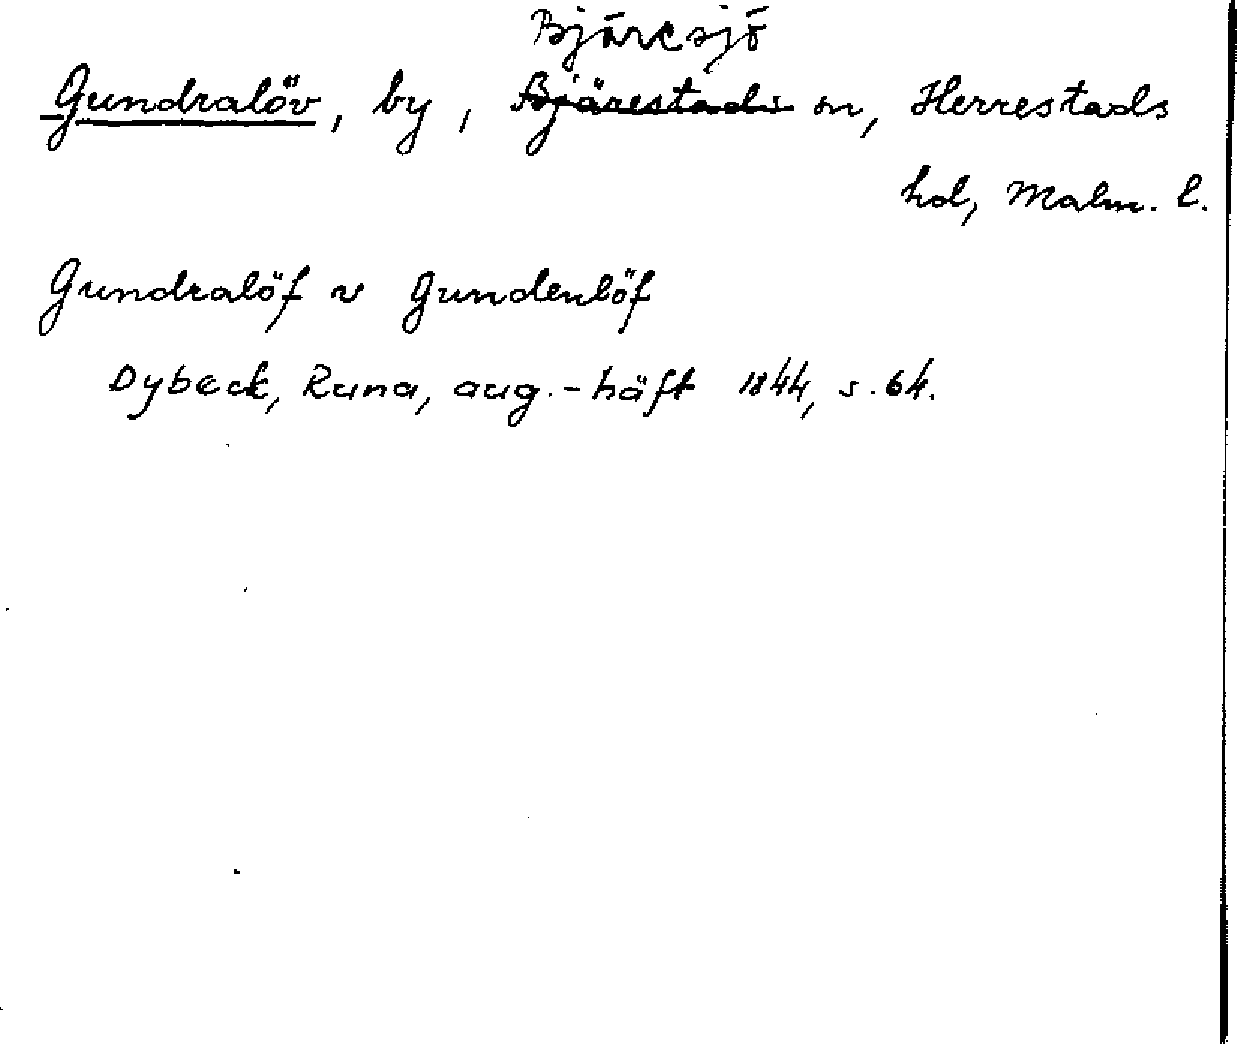 Bjäresjö
Gundralöv, by, Bjärestads sn, Herrestads
hd, Malm. l.
Gundralöf v Gundenlöf
Dybeck, Runa, aug.-häft 1844, s. 64.